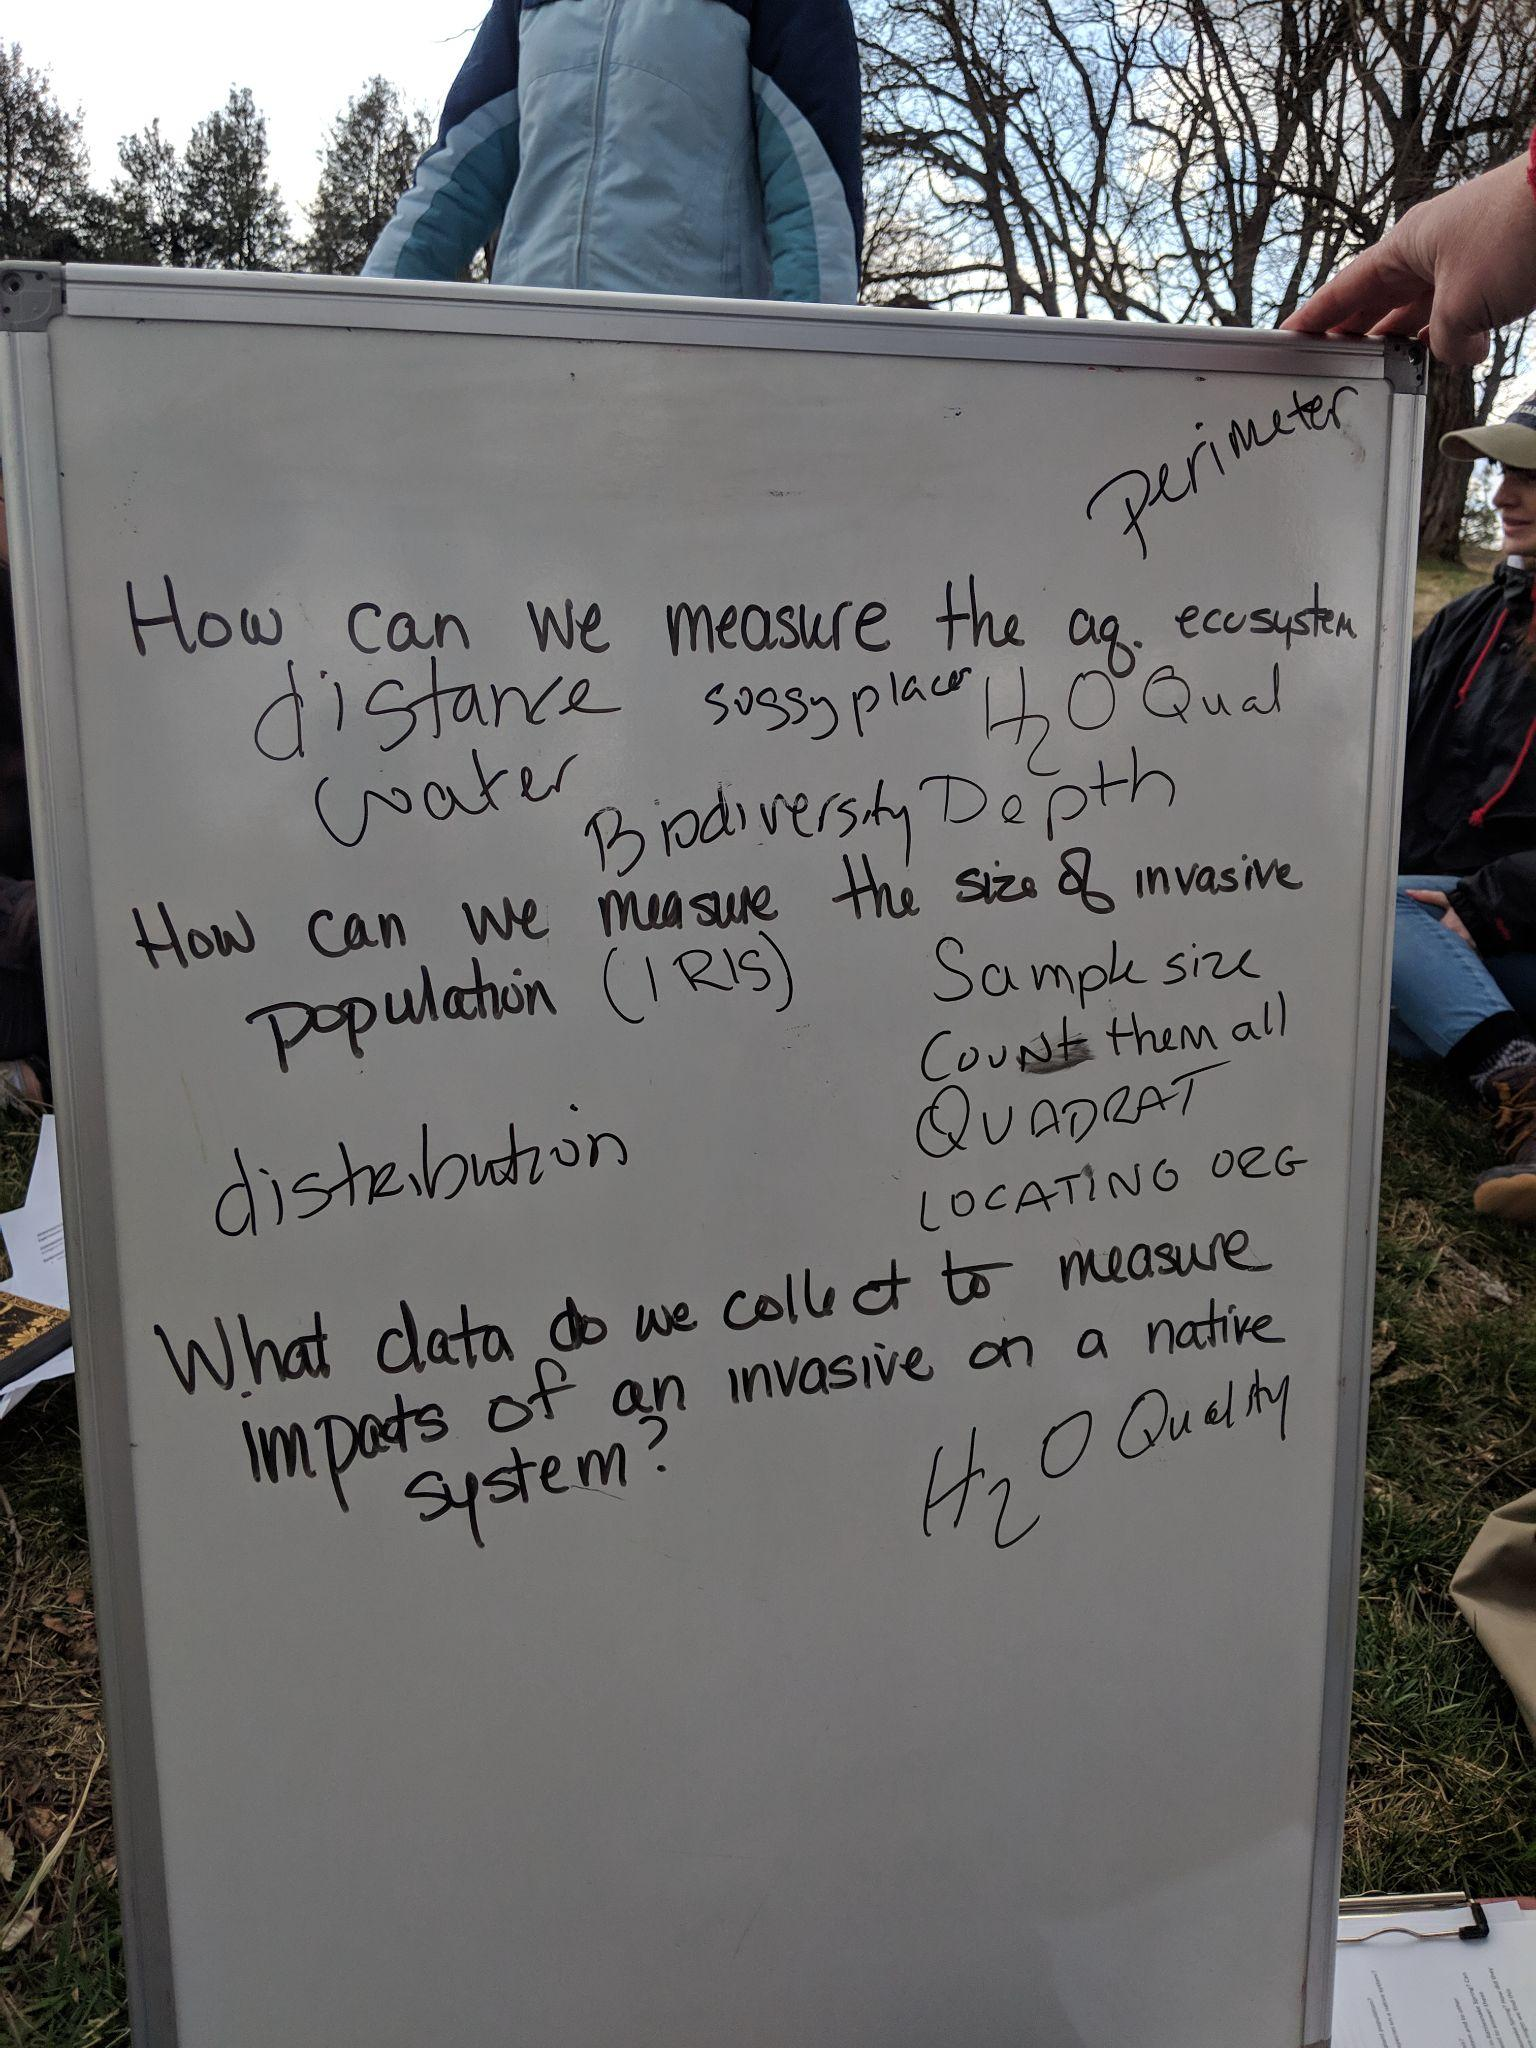 Perimeter
How can we measure the aq. ecosystem
distance soggy places H2O Qual
water Biodiversity Depth
How can we measure the size of invasive
population (IRIS) Sample size
Count them all
QUADRAT
distribution
LOCATING ORG
What data do we collect to measure
impacts of an invasive on a native
system? H2O Quality